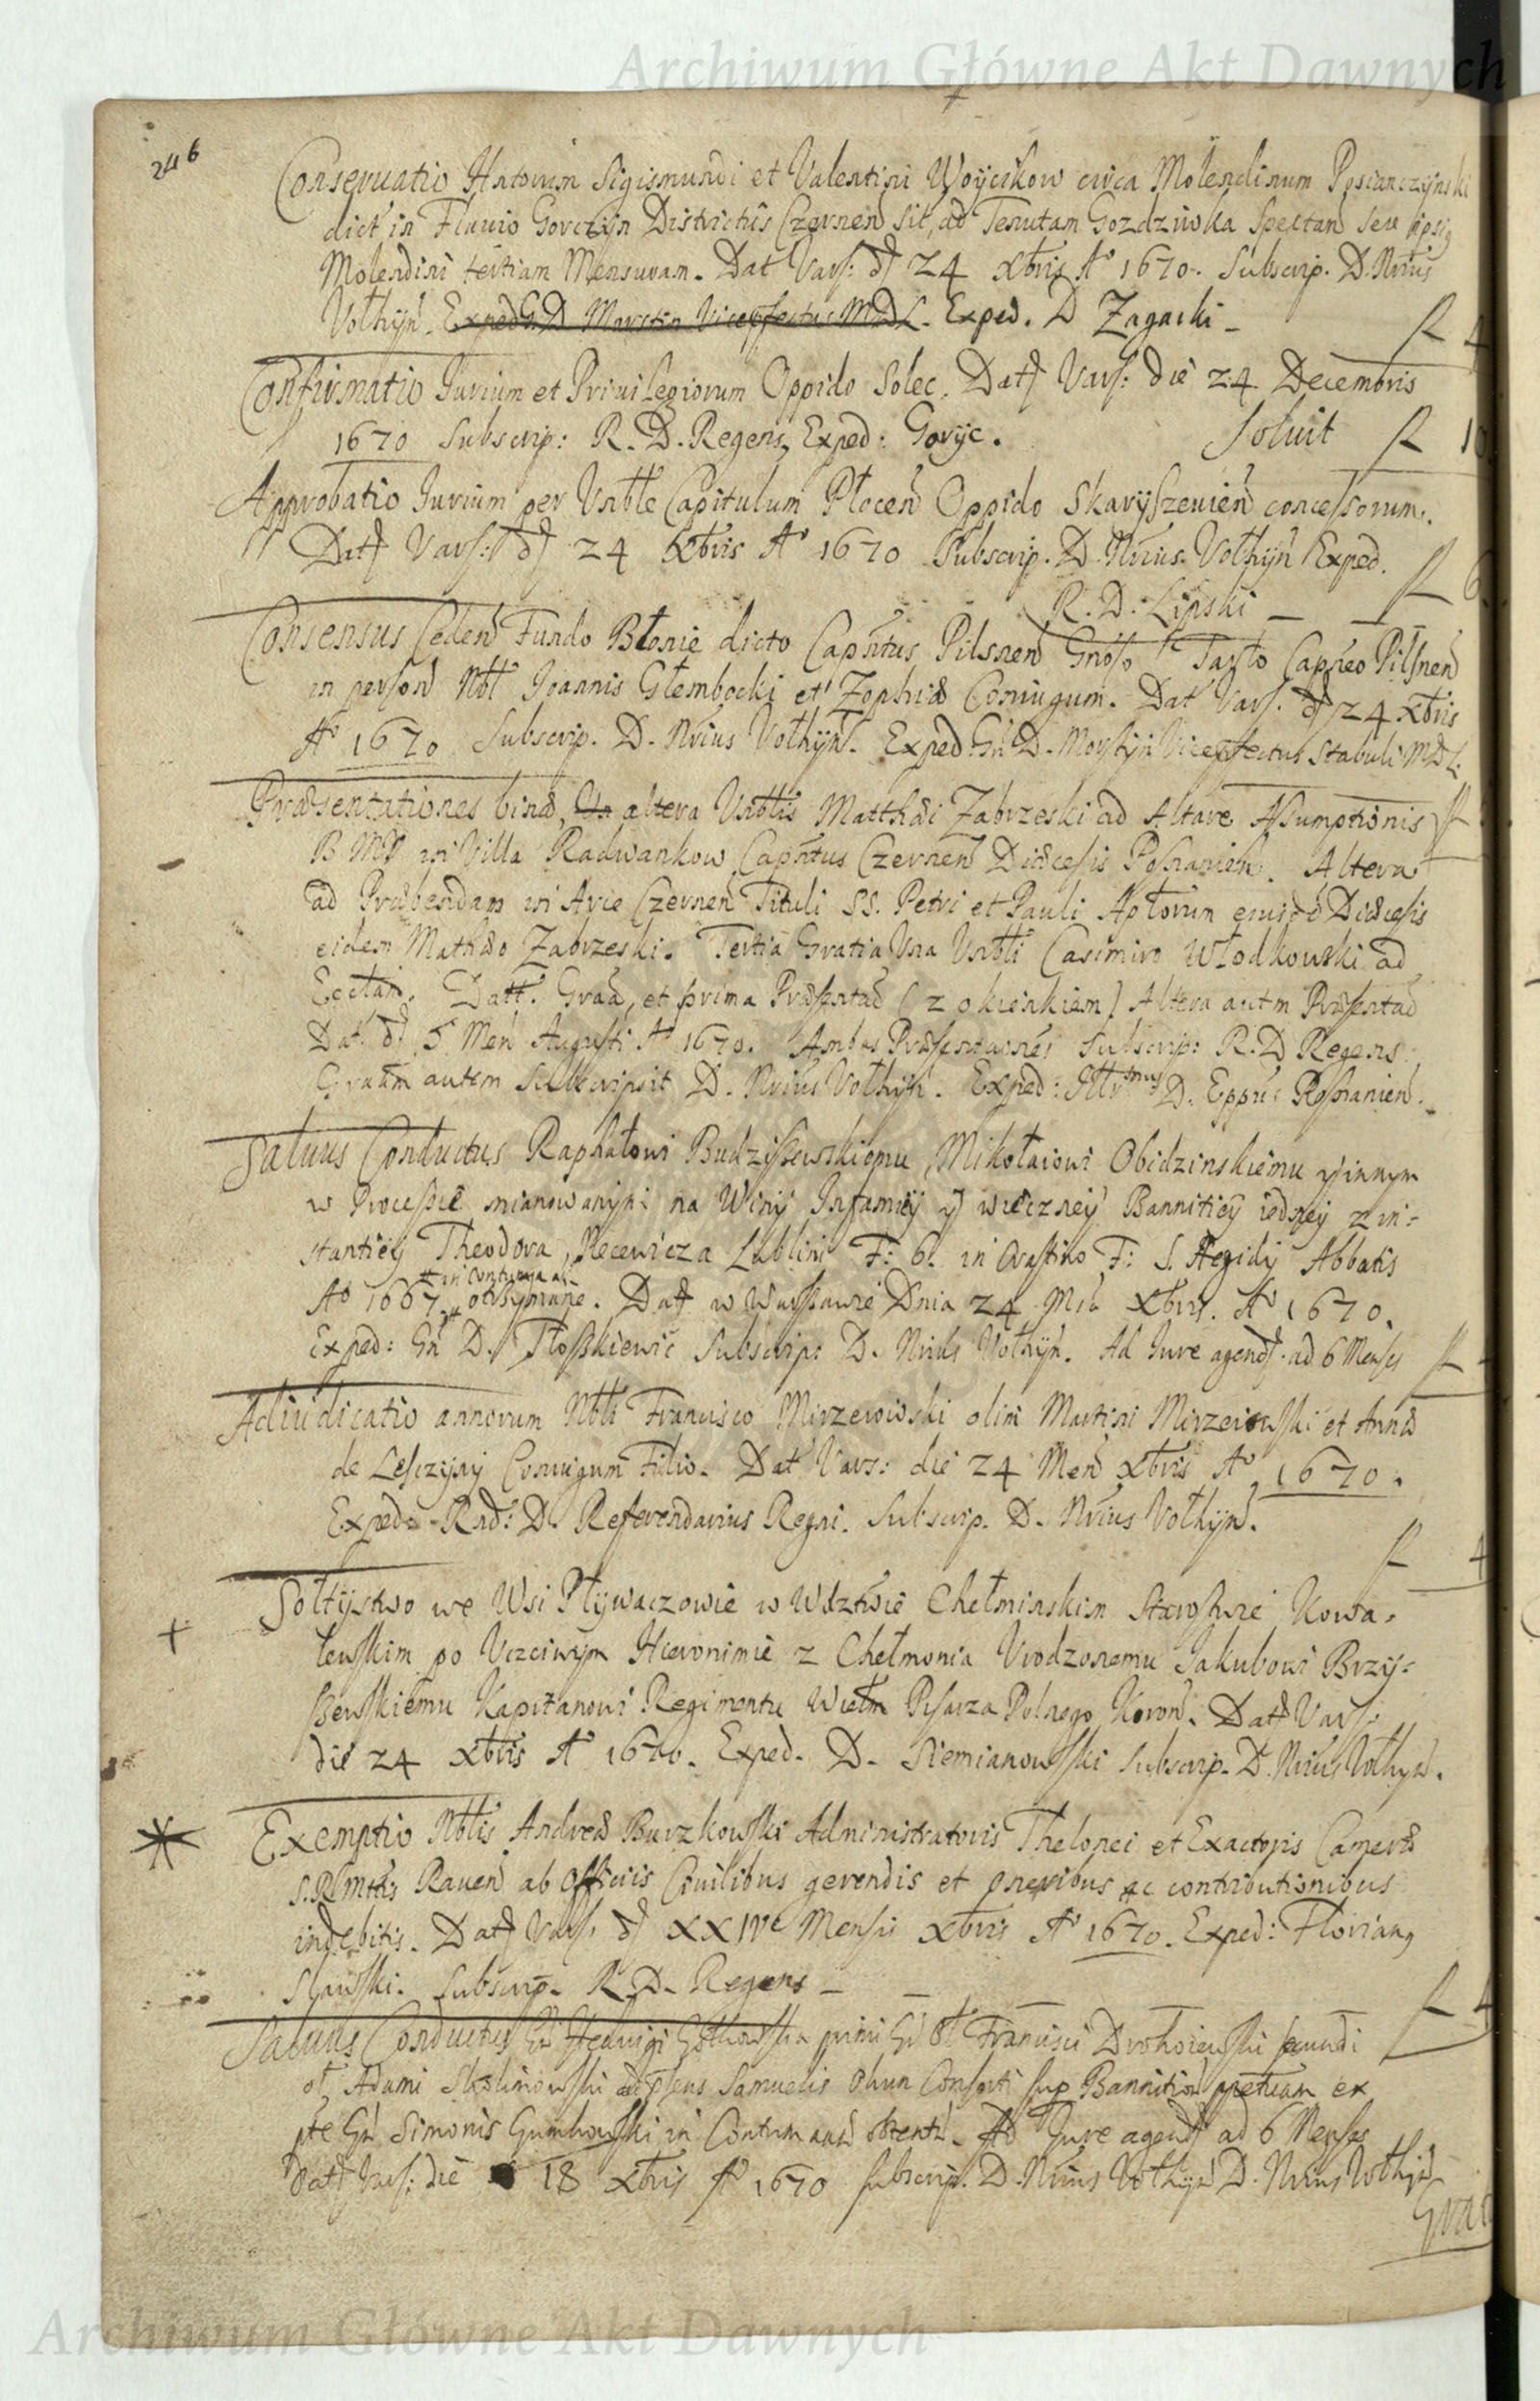 Archiwum Główne Akt Dawnych
246
Conseruatio Antonim Sigismundi et Valentini Woycikow circa Molendinum Posianczynski
dict in Fluuio Gorczyn Districtûs Czernen sit, ad Tenutam Gozdziwka Spectan seu ipsiq
Molendini tertiam Mensuram. Dat Vars: d 24 Xbris Aº 1670. Subscrip. D. Nrius
Vołhyn. Exped G. D Morstin Viceprfectus M D L. Exped. D Zagacki _
fl 4
Confirmatio Iurium et Priuilegiorum Oppido Solec. Dat Vars: die 24 Decembris
1670 Subscrip: R. D. Regens, Exped: Goryc. Soluit fl 10
Approbatio Iurium per Vnble Capitulum Płocen Oppido Skaryszeuien concessorum.
Dat Vars: d 24 Xbris Aº 1670 Subscrip. D. Nrius. Vołhyn Exped.
R. D. Lipski _ _ fl 6
Consensus Ceden Fundo Błonie dicto Capntus Pilsnen Gnoso Tarło Capneo Pilsnen
in person Nbl Joannis Głembocki et Zophiæ Coniugum. Dat Vars. d 24 Xbris
Aº 1670 Subscrip. D. Nrius Vołhyn. Exped Gn D. Morstyn Viceprfectus Stabuli M D L.
Præsentationes binæ, Vn altera Vnblis Matthæi Zabrzeski ad Altare Assumptionis fl
B M V in Villa Radwankow Capntus Czernen Diæcesis Posnanien. Altera
ad Præbendam in Arce Czernen Tituli SS. Petri et Pauli Aplorum eiusde Diæcesis
eidem Mathæo Zabrzeski. Tertia Gratia Vna Vnbli Casimiro Włodkowski ad
Ecclam. Datt. Graa, et prima Præsentaõ [z okienkiem] Altera autm Præsentaõ
Dat d 5 Men Augusti Aº 1670. Ambas Præsentaones Subscrip: R. D Regens
Graam autem Subscripsit D. Nrius Vołhyn. Exped: Illrmus D. Eppus Posnanien.
Saluus Conductus Raphałowi Budziszewskiemu, Mikołaiowi Obidzinskiemu y innym
w Processie mianowanym na Winy Infamiey y wieczney Bannitiey iedney z in=
stantiey Theodora Recewicza Lublini F: 6. in Crastino F: S. Aegidy Abbatis
in Contumaciam
Aº 1667 otrzymane. Dat w Warszawie Dnia 24 Mca Xbris. Aº 1670.
Exped: Gn D. Tłoszkiewic Subscrip: D. Nrius Vołhyn. Ad Iure agend ad 6 Menses fl
Adiudicatio annorum Nbli Francisco Mirzewowski olim Martini Mirzeiewski et Annæ
de Lesczyny Coniugum Filio. Dat Vars: die 24 Men Xbris Aº 1670.
Exped. Rnd: D. Referendarius Regni. Subscrip. D. Nrius Vołhyn.
fl 4
Sołtystwo we Wsi Pływaczowie w Wdztwie Chełminskim Starostwie Kowa=
lewskim po Vczciwym Hieronimie z Chełmonia Vrodzonemu Jakubowi Brzy=
szewskiemu Kapitanowi Regimentu Wielm Pisarza Polnego Koron. Dat Vars:
die 24 Xbris Aº 1670. Exped. D. Siemianowski Subscrip. D. Nrius Vołhyn.
Exemptio Nblis Andreæ Burzkowski Administratoris Thelonei et Exactoris Cameræ
S. R. Mttis Rauen ab Officiis Ciuilibus gerendis et oneribus ac contributionibus
indebitis. Dat Vars. d XXIVe Mensis Xbris Aº 1670. Exped: Florian,
Sławski. Subscrip. R. D. Regens _ _ _ _ fl 4
Saluus Conductus Gn Heduigi primi Gn ol Francisci Drohoiewski secundi
ol Adami Skolimowski ad pñs Samuelis Okun Consorti sup Bannition ppetuam ex
pte Gn Simonis Gumkowski in Contumaciam obtent. Ad Iure agend ad 6 Menses
Dat Vars: die 18 Xbris Aº 1670 Subscrip. D. Nrius Vołhyn D. Nrius Vołhyn
Archiwum Główne Akt Dawnych